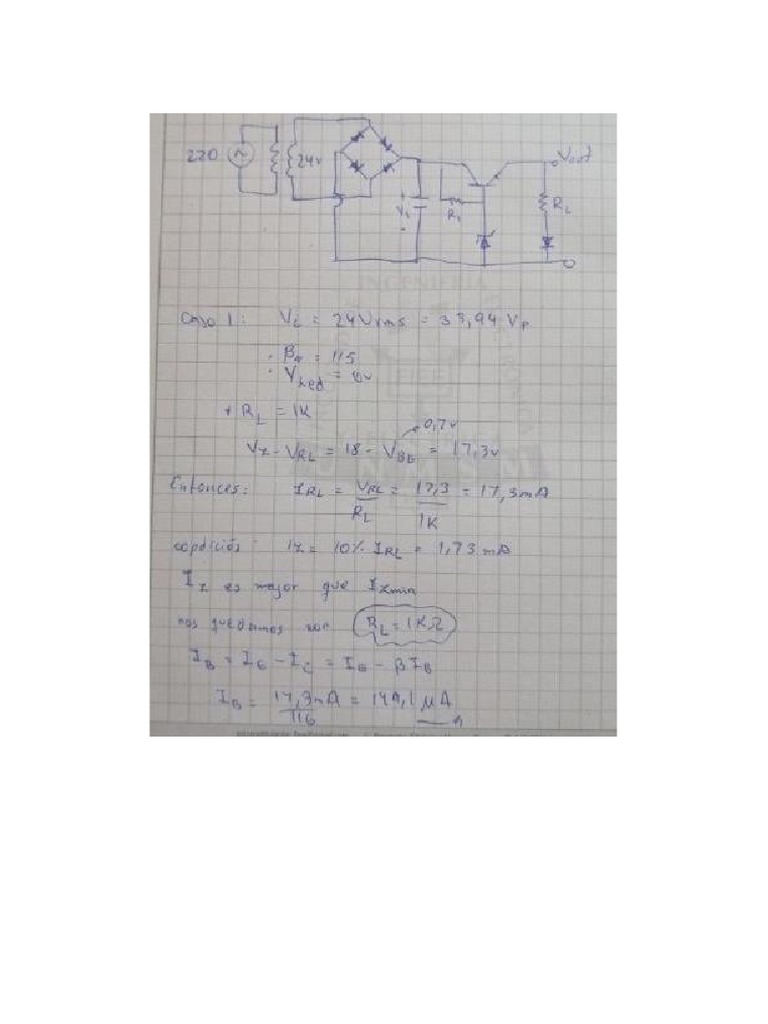 220
24v
Vout
Vi
R1
RL
INGENIERIA
Caso 1: Vi = 24Vrms = 33,94 Vp
· βQ = 115
· VLed =
+ RL = 1K
0,7v
Vz - VRL = 18 - VBE = 17,3v
Entonces: IRL = VRL/RL = 17,3/1K = 17,3mA
condición: Iz = 10% IRL = 1,73 mA
Iz es mejor que Izmin
nos quedamos con RL = 1KΩ
IB = IE - IC = IE - βIB
IB = 17,3mA/116 = 149,1 μA